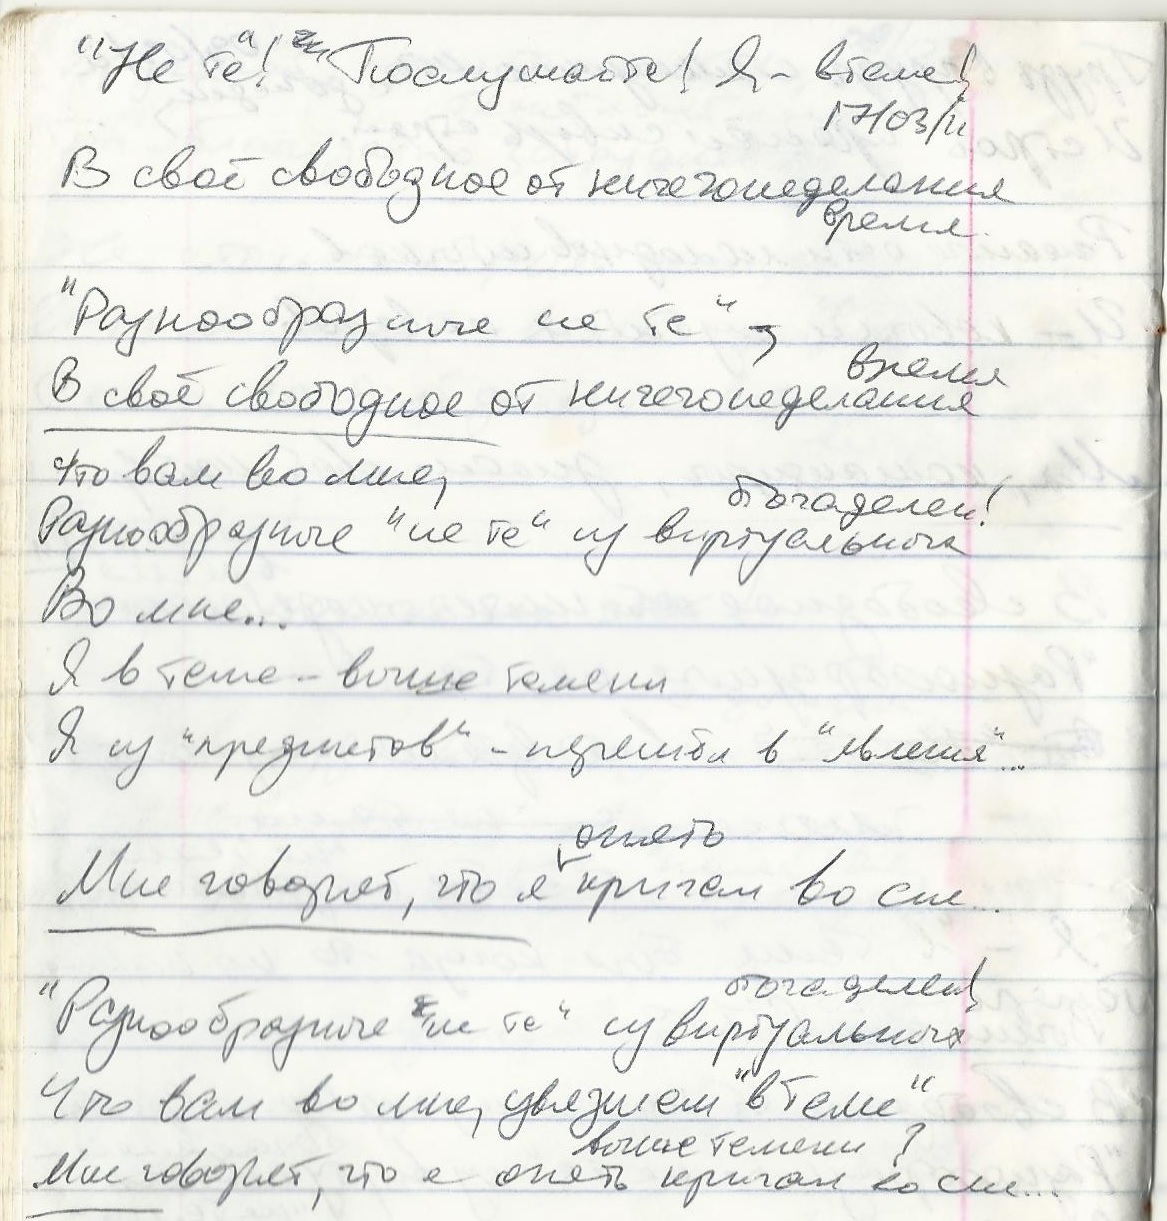 "Не те"! Послушайте! Я - в теме!
17/03/11
В своё свободное от ничегонеделания
время.
"Разнообразные не те",
В своё свободное от ничегонеделания
время
Что вам во мне,
Разнообразные "не те" из виртуальных
богаделен!
Во мне...
Я в теме - выше темени
Я из "предметов" - перешёл в "явления"...
Мне говорят, что я опять кричал во сне...
"Разнообразные "не те" из виртуальных
богаделен!
Что вам во мне, увязшем "в теме"
выше темени?
Мне говорят, что я опять кричал во сне...